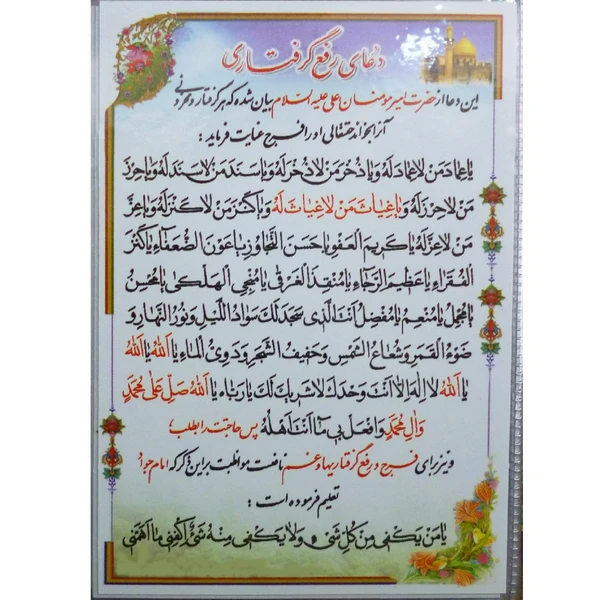 دعای رفع گرفتاری
این دعا از حضرت امیر مومنان علی علیه السلام بیان شده که هر گرفتار و محزونی
آنرا بخواند حقتعالی او را فرج عنایت فرماید :
یا عِمادَ مَنْ لا عِمادَ لَهُ وَ یا ذُخْرَ مَنْ لا ذُخْرَ لَهُ وَ یا سَنَدَ مَنْ لا سَنَدَ لَهُ وَ یا حِرْزَ
مَنْ لا حِرْزَ لَهُ وَ یا غِیاثَ مَنْ لا غِیاثَ لَهُ وَ یا کَنْزَ مَنْ لا کَنْزَ لَهُ وَ یا عِزَّ
مَنْ لا عِزَّ لَهُ یا کَریمَ الْعَفْوِ یا حَسَنَ التَّجاوُزِ یا عَوْنَ الضُّعَفاءِ یا کَنْزَ
الْفُقَراءِ یا عَظیمَ الرَّجاءِ یا مُنْقِذَ الْغَرْقی یا مُنْجِیَ الْهَلْکی یا مُحْسِنُ
یا مُجْمِلُ یا مُنْعِمُ یا مُفْضِلُ اَنْتَ الَّذی سَجَدَ لَکَ سَوادُ اللَّیْلِ وَ نُورُ النَّهارِ وَ
ضَوْءُ الْقَمَرِ وَ شُعاعُ الشَّمْسِ وَ حَفیفُ الشَّجَرِ وَ دَوِیُّ الْماءِ یا اَللهُ یا اَللهُ
یا اَللهُ لا اِلهَ اِلاّ اَنْتَ وَحْدَکَ لا شَریکَ لَکَ یا رَبّاهُ یا اَللهُ صَلِّ عَلی مُحَمَّدٍ
وَ الِ مُحَمَّدٍ وَ افْعَلْ بی ما اَنْتَ اَهْلُهُ پس حاجت را بطلب؛
و نیز برای فرج و رفع گرفتاریها و غم نافعست مواظبت بر این ذکر که امام جواد
تعلیم فرموده است :
یا مَنْ یَکْفی مِنْ کُلِّ شَیْءٍ وَ لا یَکْفی مِنْهُ شَیْءٌ اِکْفِنی ما اَهَمَّنی